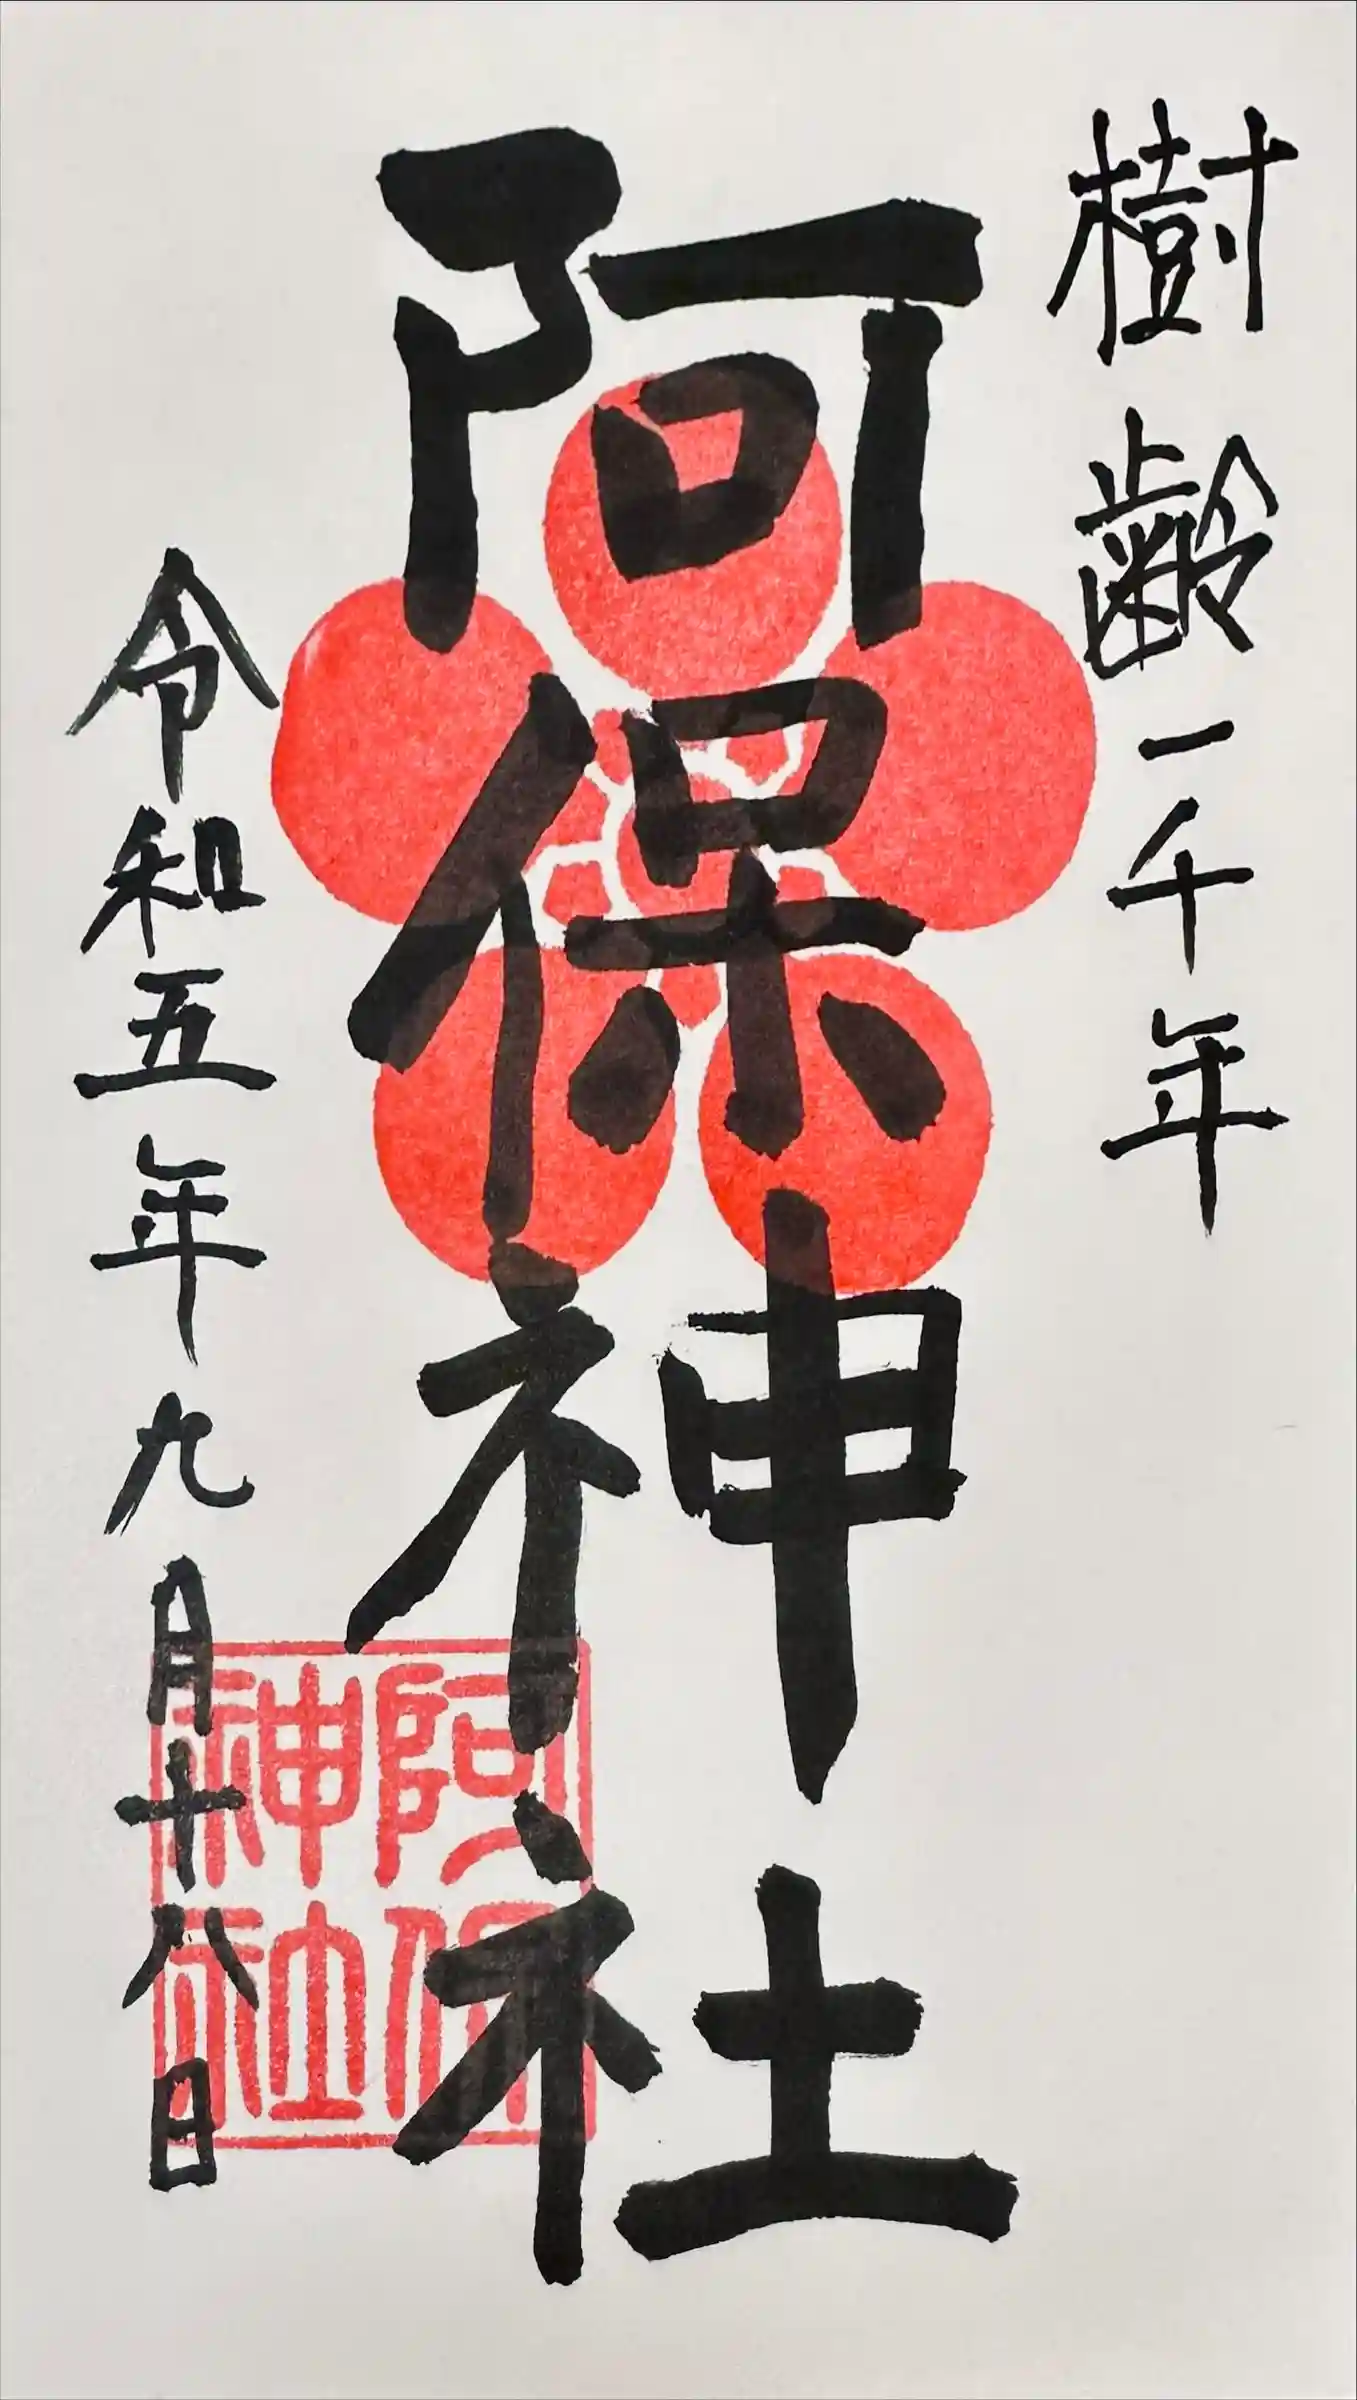 樹齢一千年
阿保神社
令和五年九月十八日
阿保
神社